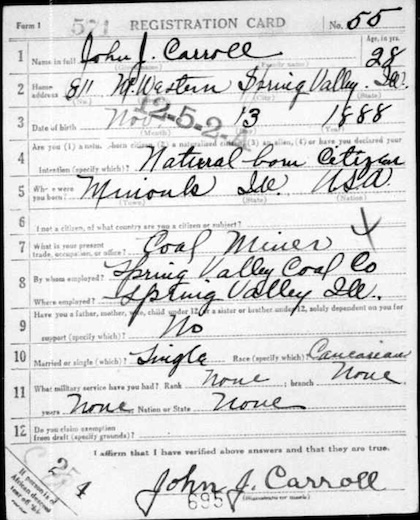 Form 1 571 REGISTRATION CARD No. 55
1 Name in full John J. Carroll Age, in yrs. 28
(Given name) (Family name)
2 Home address 811 N. Western Spring Valley, Ill.
(No.) (Street) (City) (State)
12-5-2-A
3 Date of birth Nov. 13 1888
(Month) (Day) (Year)
Are you (1) a natural-born citizen, (2) a naturalized citizen, (3) an alien, (4) or have you declared your
4 intention (specify which)? Natural-born citizen
5 Where were you born? Minonk Ill. USA
(Town) (State) (Nation)
6 If not a citizen, of what country are you a citizen or subject?
7 What is your present trade, occupation, or office? Coal Miner
8 By whom employed? Spring Valley Coal Co
Where employed? Spring Valley Ill.
9 Have you a father, mother, wife, child under 12, or a sister or brother under 12, solely dependent on you for
support (specify which)? No
10 Married or single (which)? Single Race (specify which)? Caucasian
11 What military service have you had? Rank None ; branch None
years None Nation or State None
12 Do you claim exemption from draft (specify grounds)?
I affirm that I have verified above answers and that they are true.
25
4
If person is of African descent, tear off
John J. Carroll
695 (Signature or mark)